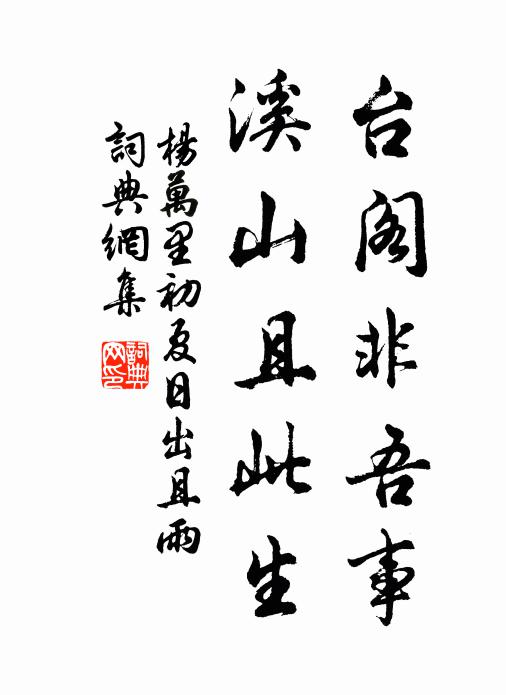 台阁非吾事
溪山且此生
楊萬里初夏日出且雨
詞典網集
詞典網印